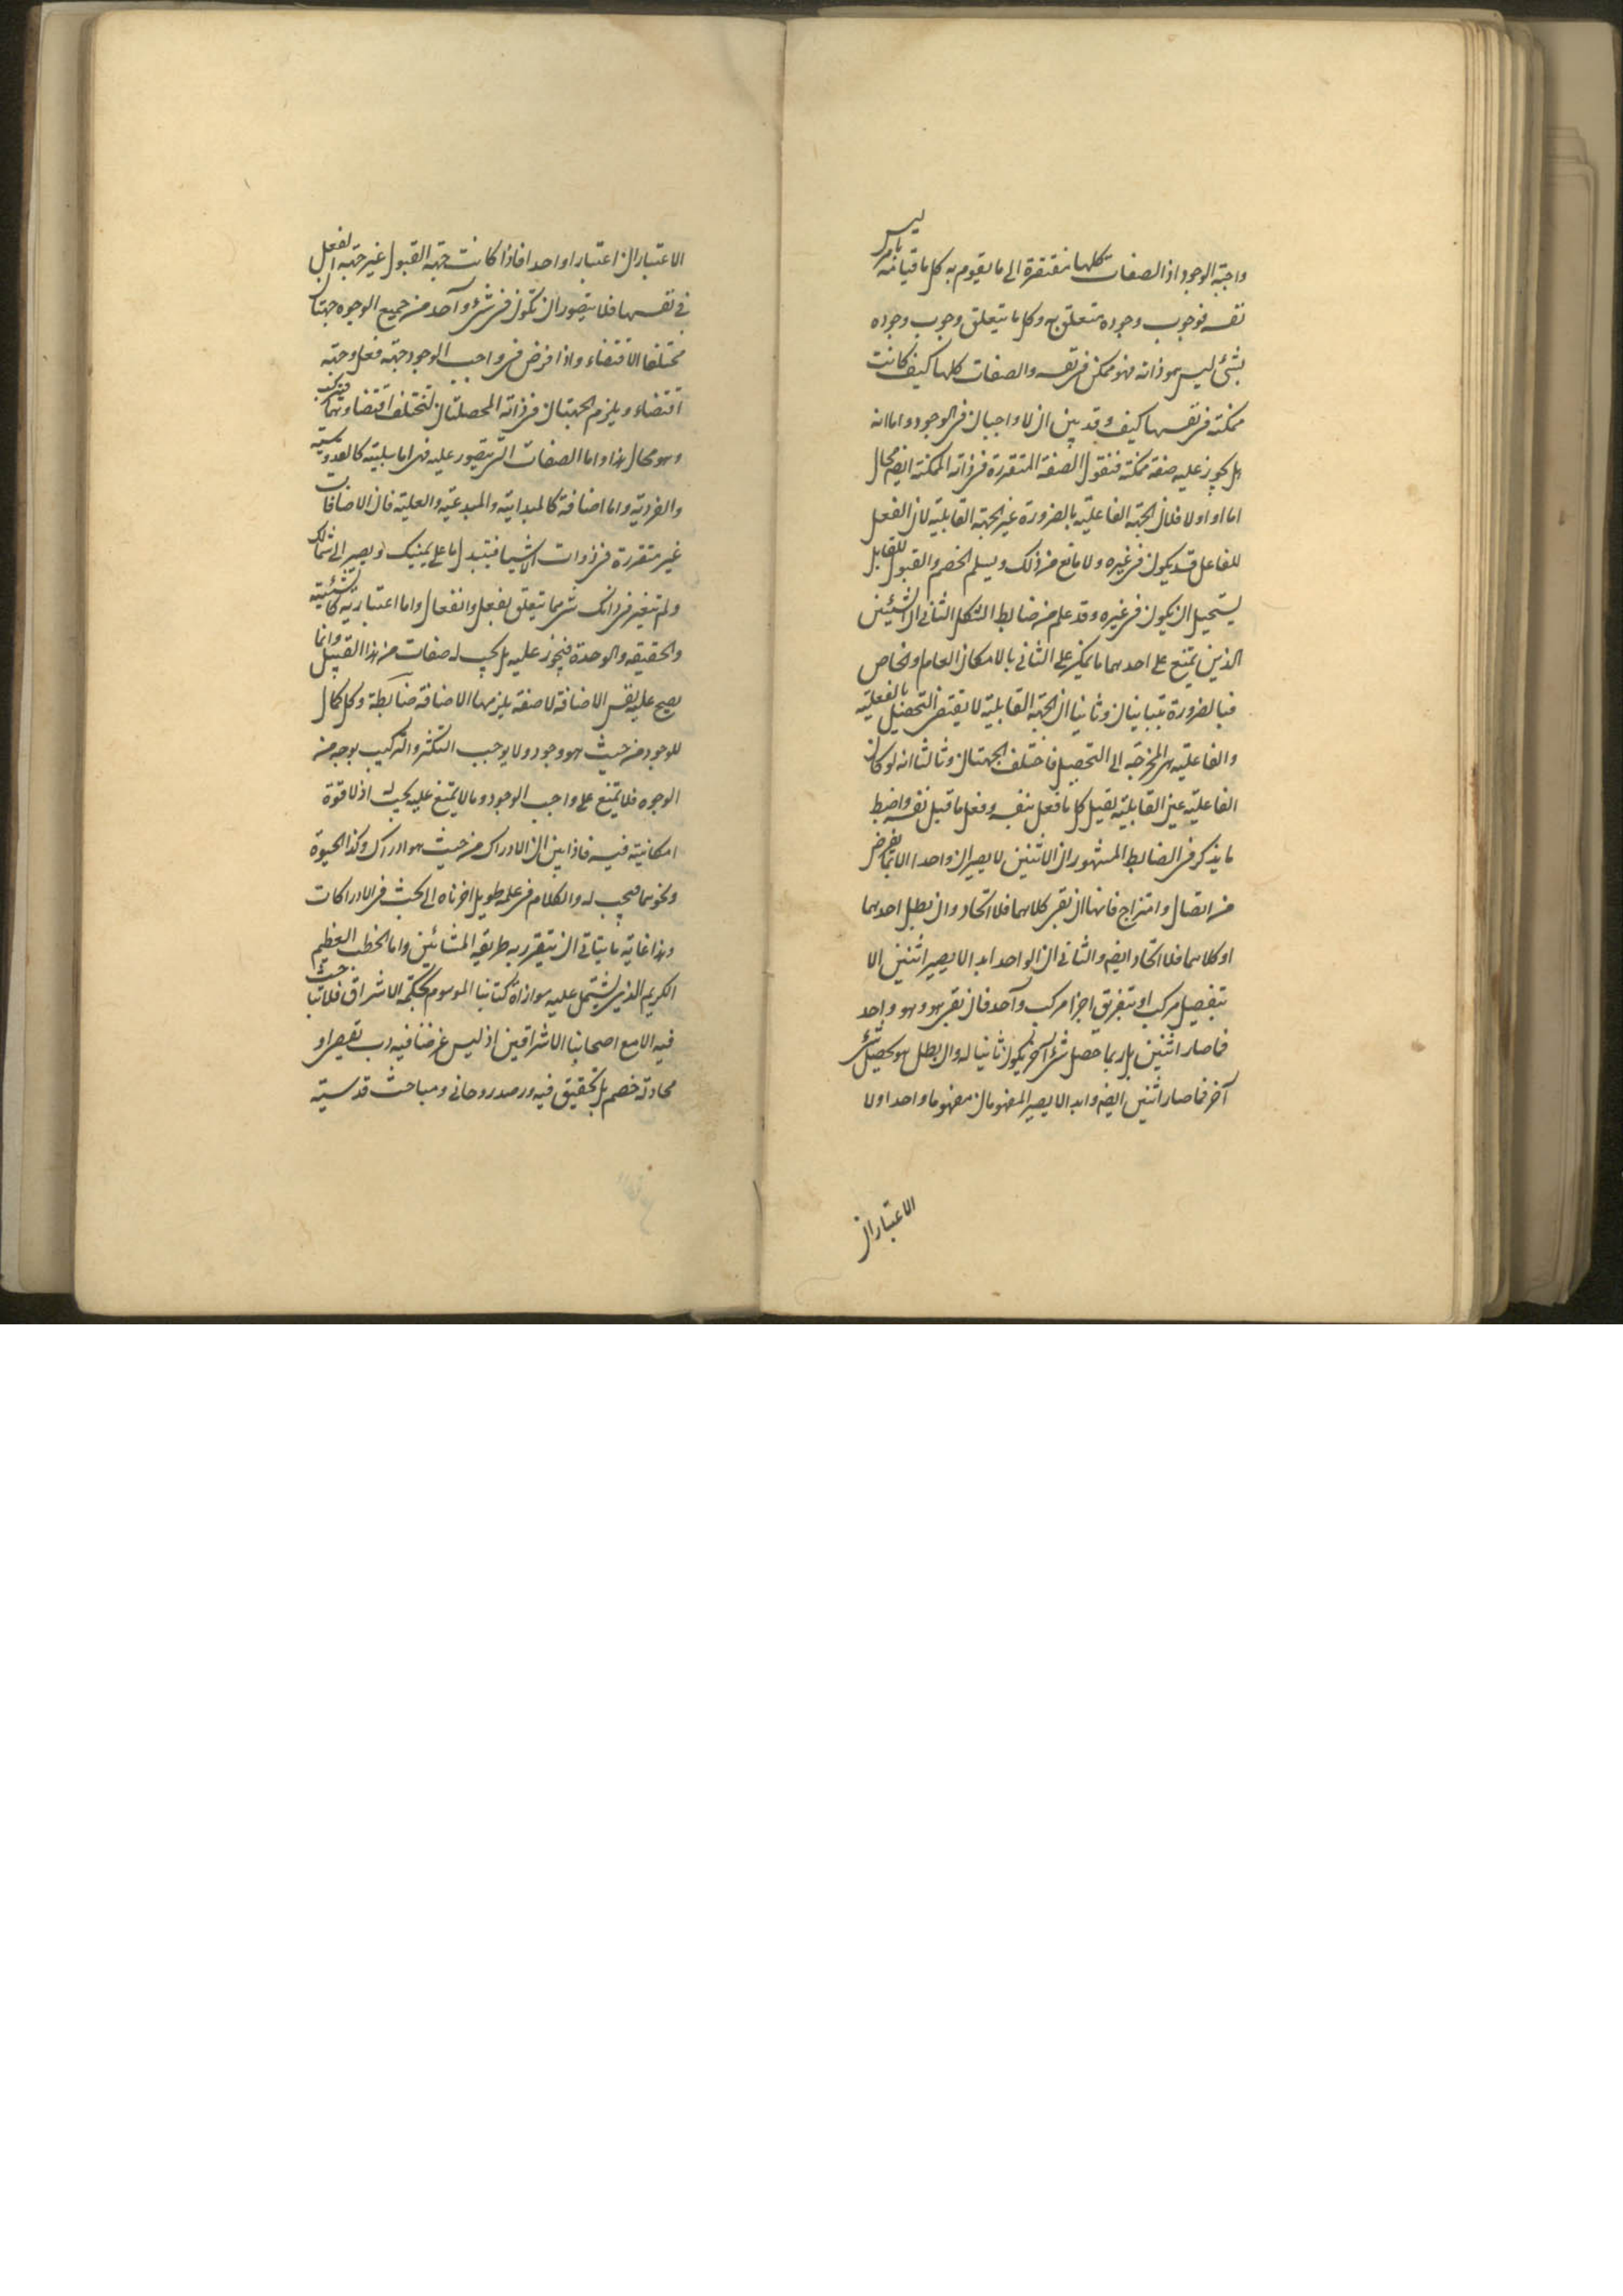 واجبة الوجود اذ الصفات كلها مفتقرة الى ما يقوم به كل ما قيامه ليس بامر
نفسه فوجوب وجوده متعلق به وكل ما يتعلق وجوب وجوده
بشئ ليس هو ذاته فهو ممكن فى نفسه والصفات كلها كيف كانت
ممكنة فى نفسها كيف وقد بين ان لا واجبان فى الوجود واما انه
هل يجوز عليه صفة ممكنة فنقول الصفة المتقررة فى ذاته الممكنة ايضا محال
اما اولا فلان الجهة الفاعلية بالضرورة غير الجهة القابلية لان الفعل
للفاعل قد يكون فى غيره ولا مانع من ذلك ويسلم الخصم والقبول للقابل
يستحيل ان يكون فى غيره وقد علم من ضابط الشكل الثانى ان الشيئين
الذين يمتنع على احدهما ما يمكن على الثانى بالامكان العام والخاص
فبالضرورة يتباينان وثانيا ان الجهة القابلية لا يقتضى التحصيل بالفعلية
والفاعلية هى المخرجة الى التحصيل فاختلف الجهتان وثالثا انه لو كان
الفاعلية عين القابلية لقبل كل ما فعل بنفسه وفعل ما قبل نفسه واضبط
ما يذكر فى الضابط المشهور ان الاثنين لا يصيران واحدا الا بما يفرض
من اتصال وامتزاج فانهما ان بقى كلاهما فلا اتحاد وان بطل احدهما
او كلاهما فلا اتحاد ايضا والثانى ان الواحد ابدا لا يصير اثنين الا
بتفصيل مركب او بتفريق اجزا مركب واحد فان بقى هو وهو واحد
فما صار اثنين بل ربما حصل شئ آخر يكون ثانيا له وان بطل هو يحصل شئ
آخر فما صار اثنين ايضا وابدا لا يصير المفهومان مفهوما واحدا ولا
الاعتباران
الاعتباران اعتبارا واحدا فاذا كانت جهة القبول غير جهة الفعل
فى نفسها فلا يتصور ان تكون فى شئ واحد من جميع الوجوه جهتا
مختلفا الاقتضاء واذا فرض فى واجب الوجود جهة فعل وجهة
اقتضاء ويلزم الجهتان فى ذاته المحصلتان لتختلف اقتضاوهما فيتركب
وهو محال هذا واما الصفات التى يتصور عليه فهى اما سلبية كالقدوسية
والفردية واما اضافة كالمبدائية والمبدعية والعلية فان الاضافات
غير متقررة فى ذوات الاشيا فيتبدل ما على يمينك ويصير الى شمالك
ولم تتغير فى ذاتك شئ مما يتعلق بفعل وانفعال واما اعتبارية كالشيئية
والحقيقة والوحدة فيجوز عليه بل يجب له صفات من هذا القبيل وانما
يصح عليه نفس الاضافة لا صفة يلزمها الاضافة ضابطة وكل كمال
للوجود من حيث هو وجود ولا يوجب التكثر والتركيب بوجه من
الوجوه فلا يمتنع على واجب الوجود وما لا يمتنع عليه يجب له اذ لا قوة
امكانية فيه فاذا بين ان الادراك من حيث هو ادراك وكذا الحيوة
ونحوهما فيجب له والكلام فى علمه طويل اخرناه الى البحث فى الادراكات
وهذا غاية ما يتاتى ان يتقرر به طريقة المشائين واما الخطب العظيم
الكريم الذى يشتمل عليه سوازاة كتابنا الموسوم بحكمة الاشراق فلا تباحث
فيه الا مع اصحابنا الاشراقين اذ ليس غرضنا فيه ذب نقيض او
محادثة خصم بل تحقيق فيه ورصد روحانى ومباحث قدسية